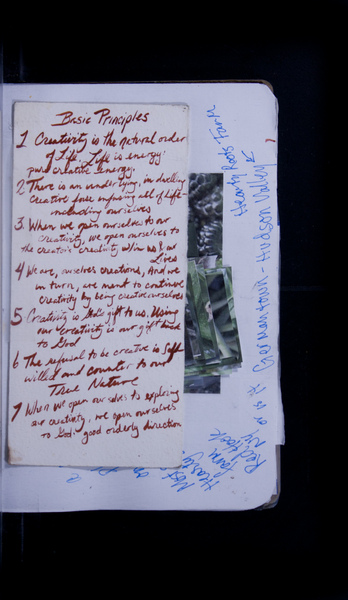 Basic Principles
1 Creativity is the natural order
of Life. Life is energy:
pure creative energy.
2 There is an underlying, in dwelling
creative force infusing all of life -
including ourselves
3. When we open ourselves to our
creativity, we open ourselves to
the creator's creativity w/in us & our
Lives
4 We are, ourselves creations, And we
in turn, are meant to continue
creativity by being creative ourselves
5 Creativity is God's gift to us. Using
our creativity is our gift back
to God
6 The refusal to be creative is self
willed and counter to our
True Nature
7 When we open ourselves to exploring
our creativity, we open ourselves
to God: good orderly direction
Hearty Roots Farm
Germantown - Hudson Valley
Hearty
Farm
Red Hook
NY